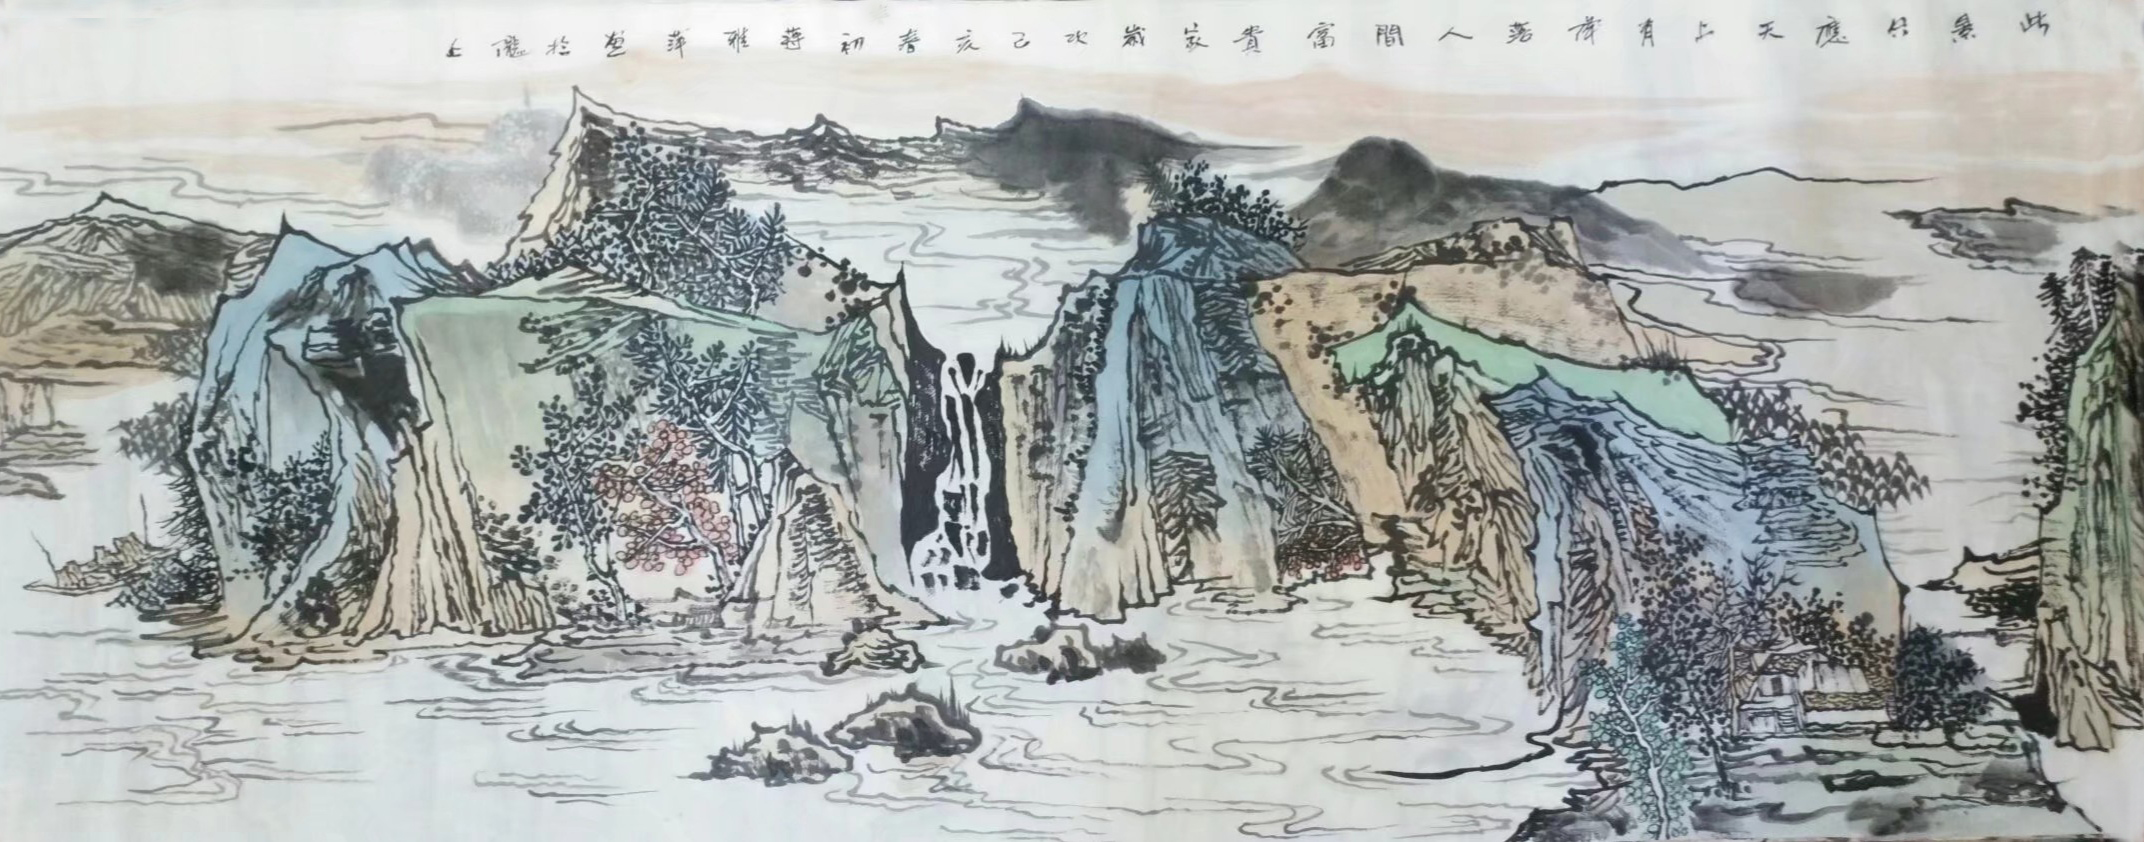 此景只應天上有降落人間富貴家歲次己亥春初蔣雅萍畫於儷上